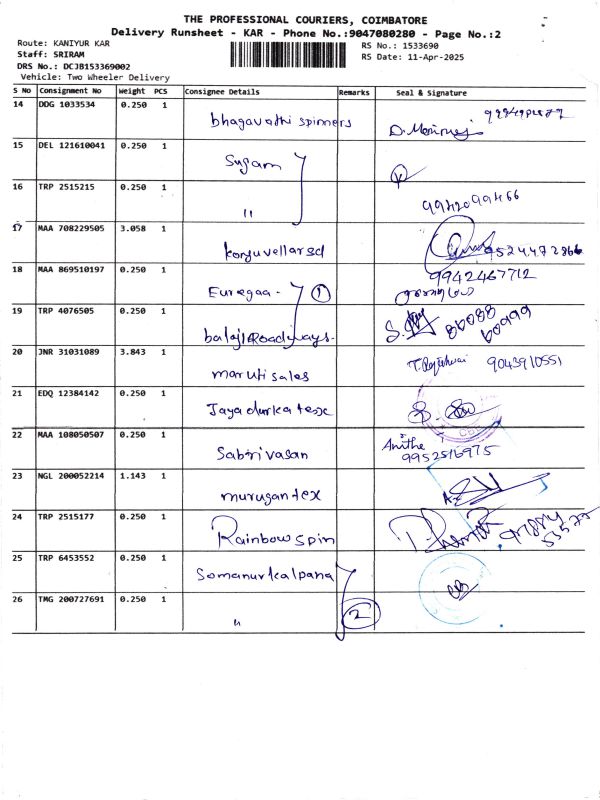 THE PROFESSIONAL COURIERS, COIMBATORE
Delivery Runsheet - KAR - Phone No.:9047080280 - Page No.:2
Route: KANIYUR KAR
Staff: SRIRAM
DRS No.: DCJB153369002
Vehicle: Two Wheeler Delivery
RS No.: 1533690
RS Date: 11-Apr-2025
S No Consignment No Weight PCS Consignee Details Remarks Seal & Signature
14 DDG 1033534 0.250 1 bhagavathi spinners
15 DEL 121610041 0.250 1 Sugam
16 TRP 2515215 0.250 1 " 9942099466
17 MAA 708229505 3.058 1 konguvellarsd 9524472866
18 MAA 869510197 0.250 1 Euregaa - 1 9942467712
19 TRP 4076505 0.250 1 balaji Roadways. 86088 60999
20 JNR 31031089 3.843 1 maruti sales 9043910551
21 EDQ 12384142 0.250 1 Jayadurka texx
22 MAA 108050507 0.250 1 Sabtrivasan Anithe 9952516975
23 NGL 200052214 1.143 1 murugan tex
24 TRP 2515177 0.250 1 Rainbow spin
25 TRP 6453552 0.250 1 Somanurkalpana
26 TMG 200727691 0.250 1 " 2